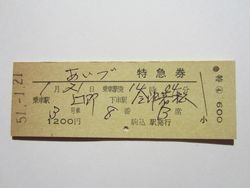 あいづ 特急券
1月21日 乗車駅発 時 分
乗車駅 上野 下車駅 会津若松
3号車 8番 席
1200円 駒込駅発行
51.-1.21
600
小